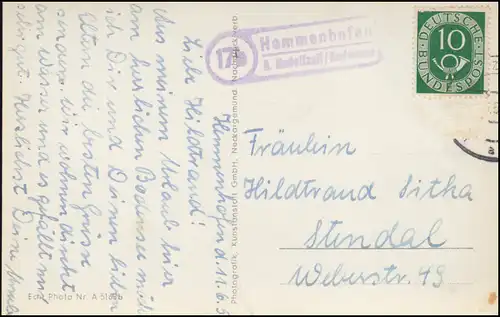 Hemmenhofen d. 11.6.5
Liebe Hildtraud!
Aus meinem Urlaub hier
am herrlichen Bodensee möchte
ich Dir und Deinen lieben
Eltern die besten Grüsse
senden. Wir wohnen direkt
am Wasser und es gefällt mir
sehr gut. Herzlichst Deine
Edit Photo Nr. A 5169b
Photografik, Kunstanstalt GmbH, Neckargemünd. Nachdruck verb.
17b
Hemmenhofen
ü. Radolfzell (Bodensee)
DEUTSCHE
BUNDESPOST
10
Fräulein
Hildtraud Sitha
Stendal
Weberstr. 49